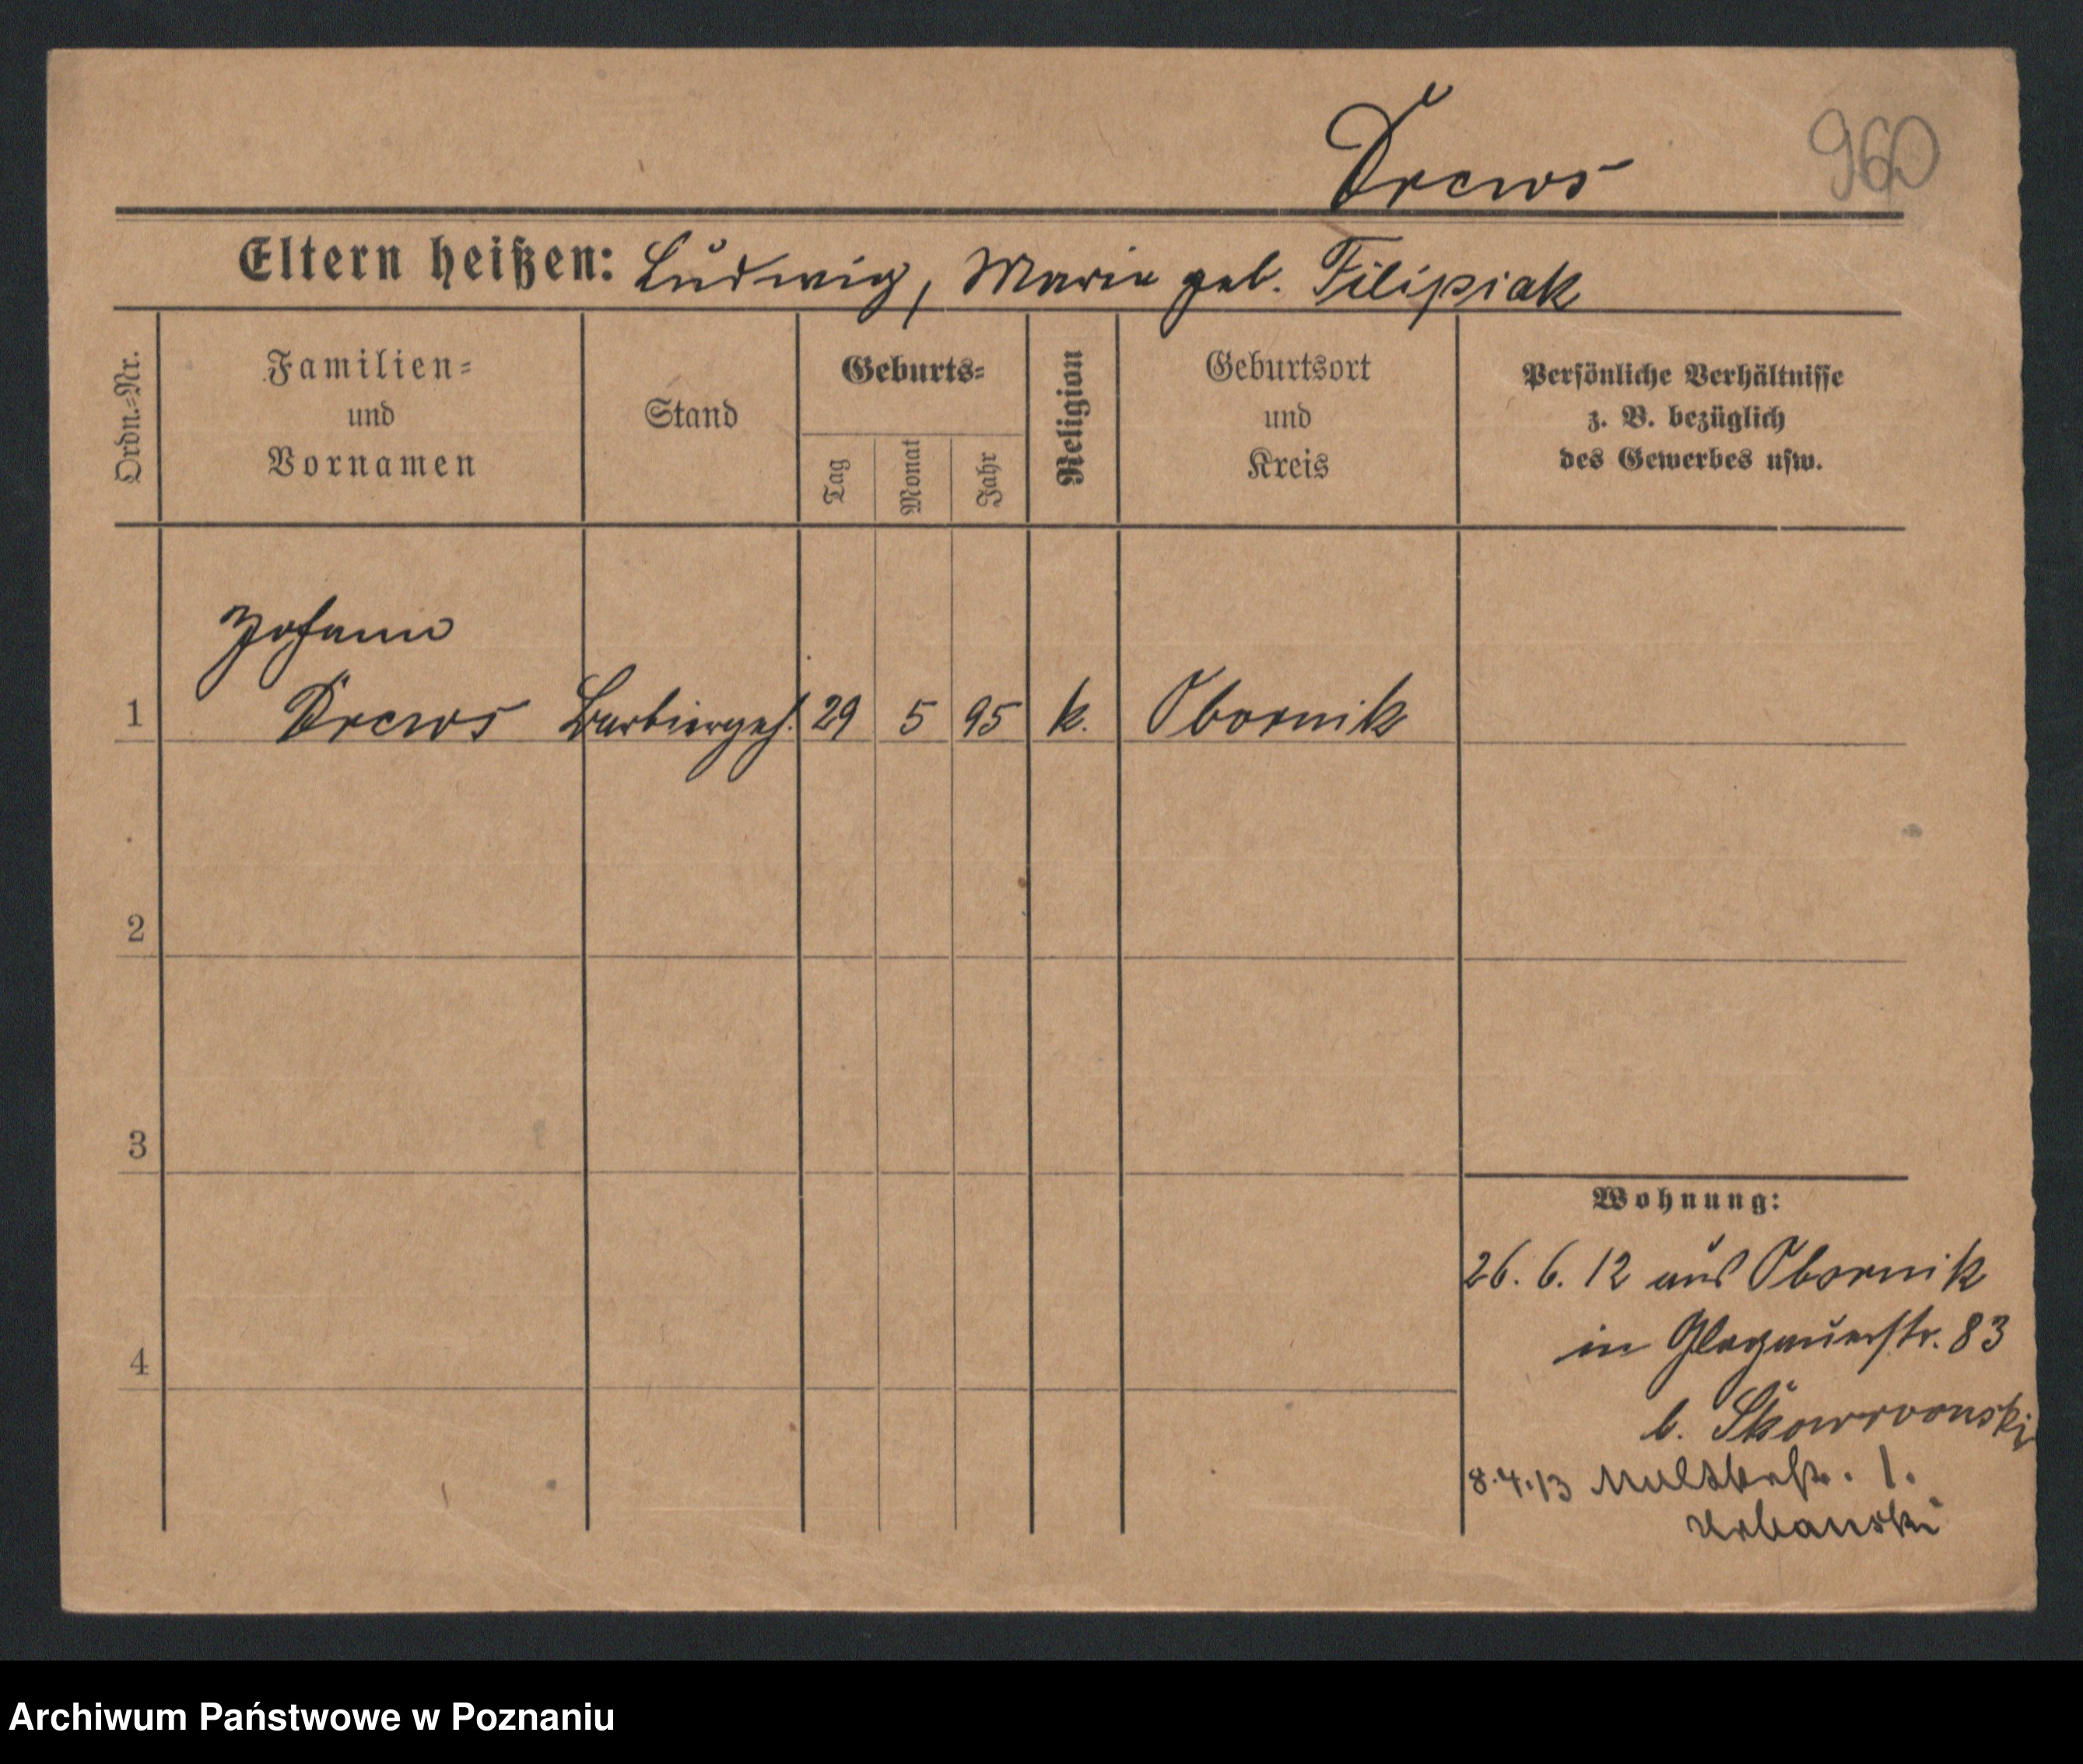 Drews
960
Eltern heißen: Ludwig, Maria geb. Filipiak
Ordn.-Nr.
Familien-
und
Vornamen
Stand
Geburts-
Tag
Monat
Jahr
Religion
Geburtsort
und
Kreis
Persönliche Verhältnisse
z. B. bezüglich
des Gewerbes usw.
Johann
1 Drews Barbiergeh. 29 5 95 k. Obornik
2
3
Wohnung:
26. 6. 12 aus Obornik
in Glogauerstr. 83
4
b. Skowronski
8.4.13 1.
Urbanski
Archiwum Państwowe w Poznaniu